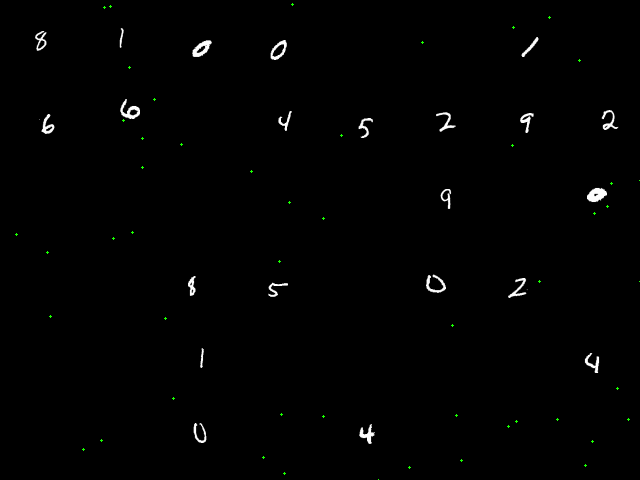 8 1 0 0 1
6 6 4 5 2 9 2
9 0
8 5 0 2
1 4
0 4